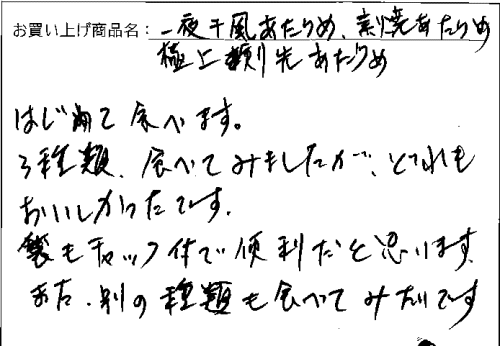 お買い上げ商品名：一夜干風あたりめ、素焼あたりめ
極上剣先あたりめ
はじめて食べます。
3種類、食べてみましたが、とれも
おいしかったです。
袋もチャック付で便利だと思います。
また、別の種類も食べてみたいです